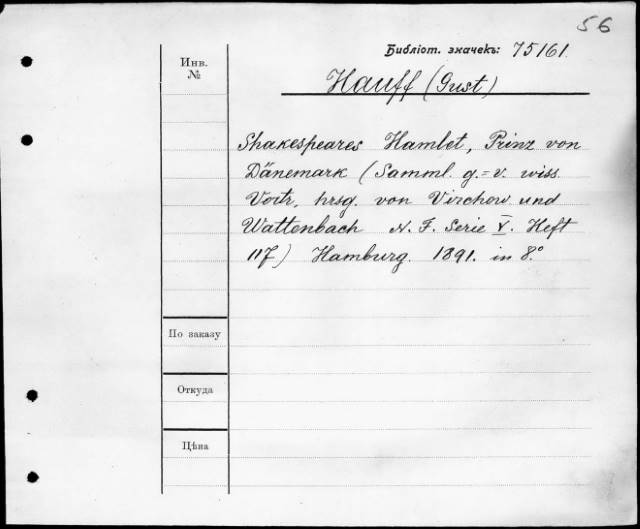 56
Библіот. значекъ: 75161.
Инв.
№
Hauff (Gust)
Shakespeares Hamlet, Prinz von
Dänemark (Samml. g.=v. wiss.
Vortr. hrsg. von Virchow und
Wattenbach N. F. Serie V. Heft
117) Hamburg. 1891. in 8.°
По заказу
Откуда
Цѣна